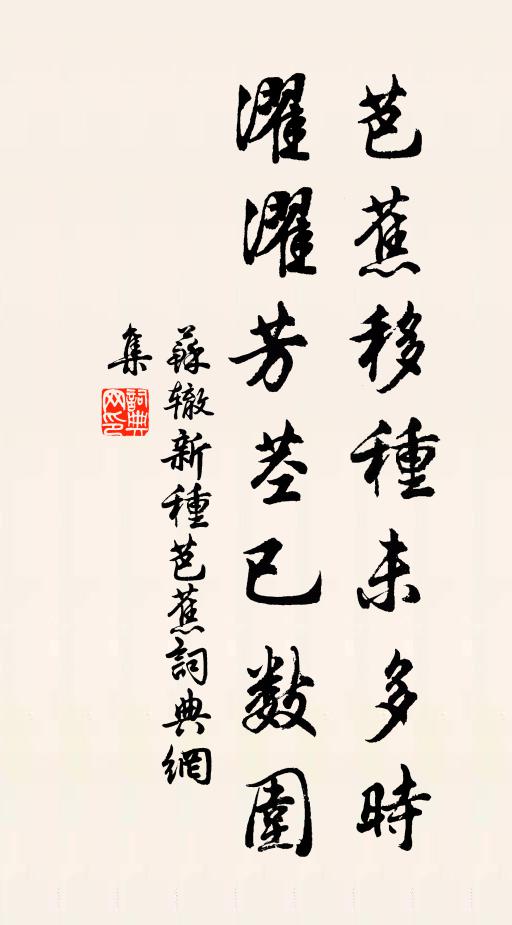 芭蕉移種未多時
濯濯芳莖已數圍
蘇辙新種芭蕉詞典網
集
詞典
网印